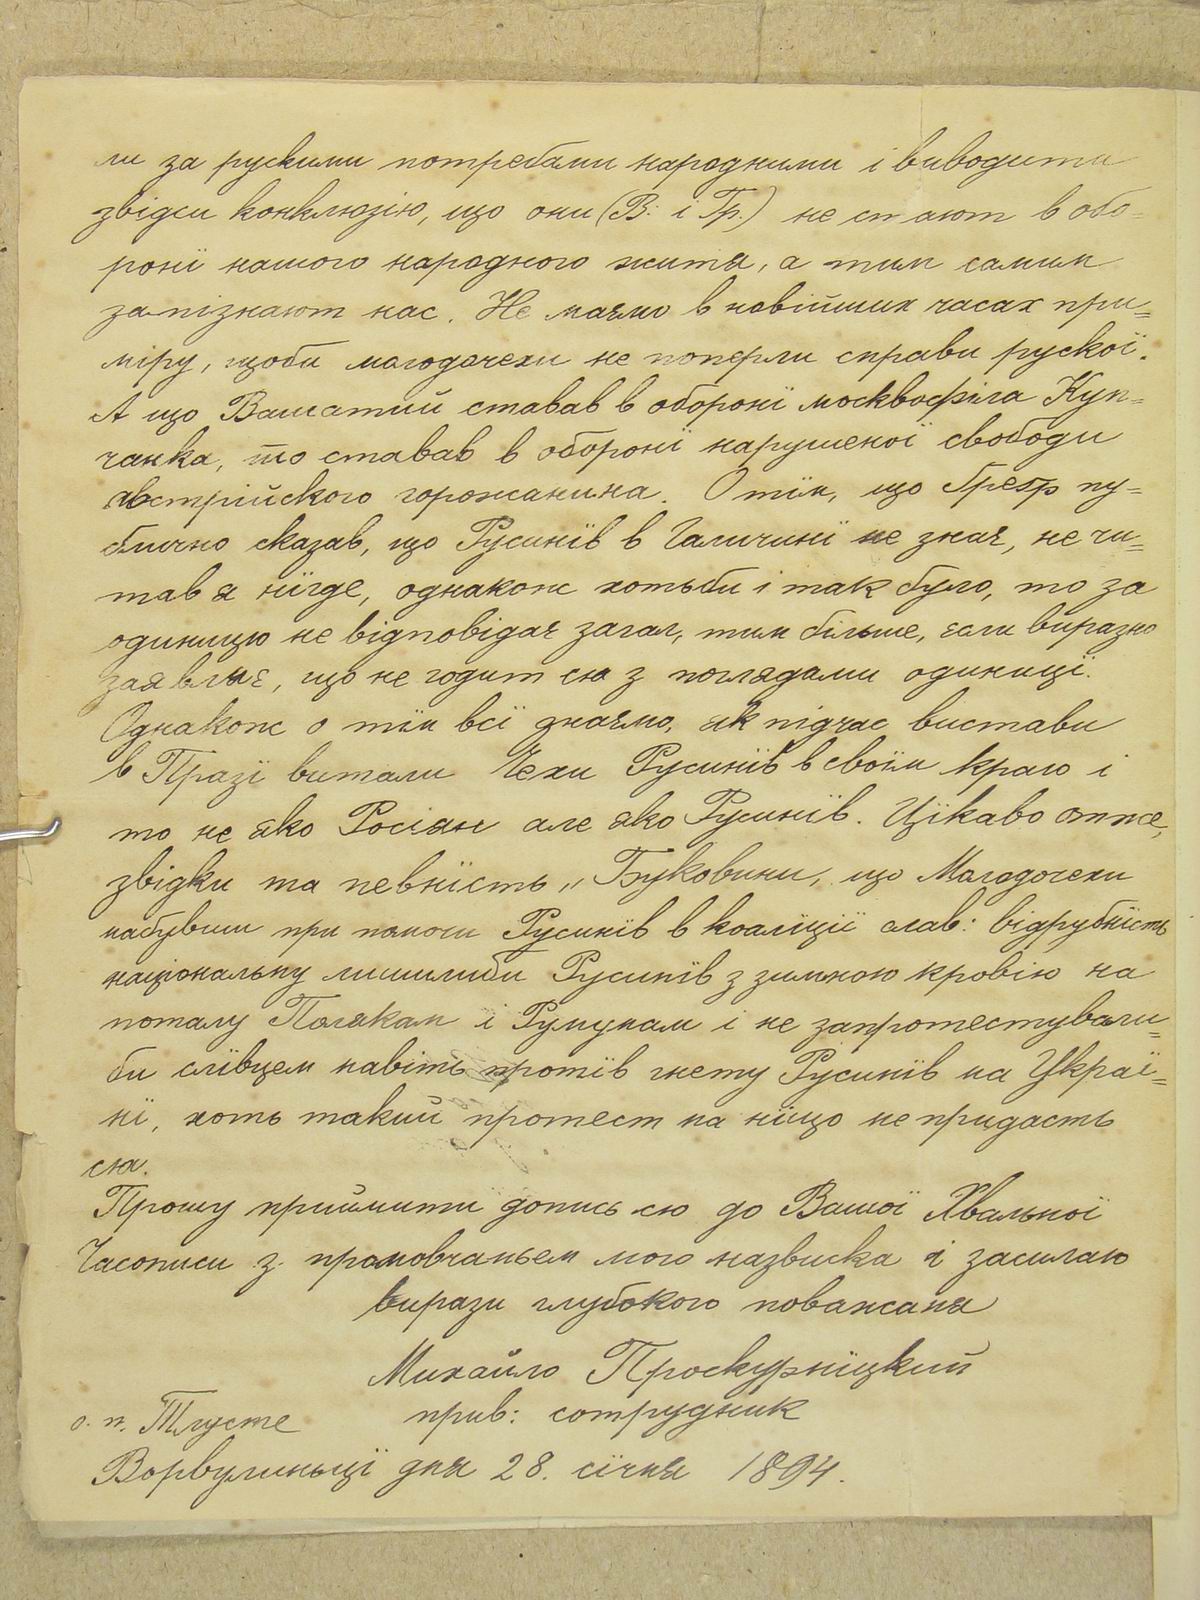 ли за рускими потребами народними і виводити
звідси конклюзію, що они (В: і Гр.) не стают в обо=
роні нашого народного житя, а тим самим
запізнают нас. Не маємо в новійших часах при=
міру, щоби молодочехи не поперли справи рускої.
А що Вашатий ставав в обороні москвофіла Куп=
чанка, то ставав в обороні нарушеної свободи
австрійского горожанина. О тім, що Грегр пу=
блично сказав, що Русинїв в Галичинї не знає, не чи=
тав я нїгде, однакож хотьби і так було, то за
одиницю не відповідає загал, тим більше, єсли виразно
заявляє, що не годит сю з поглядами одиницї.
Однакож о тїм всї знаємо, як підчас вистави
в Празї витали Чехи Русинїв в своїм краю і
то не яко Росіян але яко Русинїв. Цїкаво отже,
звідки та певнїсть „Буковини, що Молодочехи
набувши при помочи Русинїв в коалїциї слав: відрубнїсть
національну лишилиби Русинїв з зимною кровію на
поталу Полякам і Румунам і не запротестували=
би слївцем навіть протїв гнету Русинїв на Украї=
нї, хоть такий протест на нїщо не придасть
сю.
Прошу приймити допись сю до Вашої Хвальної
Часописи з промовчаньем мого назвиска і засилаю
вирази глубокого поважаня
Михайло Проскурнїцкий
прив: сотрудник
о. п. Тлусте
Ворвулиньцї дня 28. сїчня 1894.